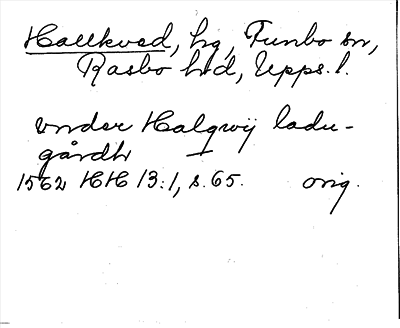 Hallkved, hg, Funbo sn,
Rasbo hd, Upps. l.
vnder Halqwij ladu-
gårdh —
1562 HH 13:1, s. 65. orig.